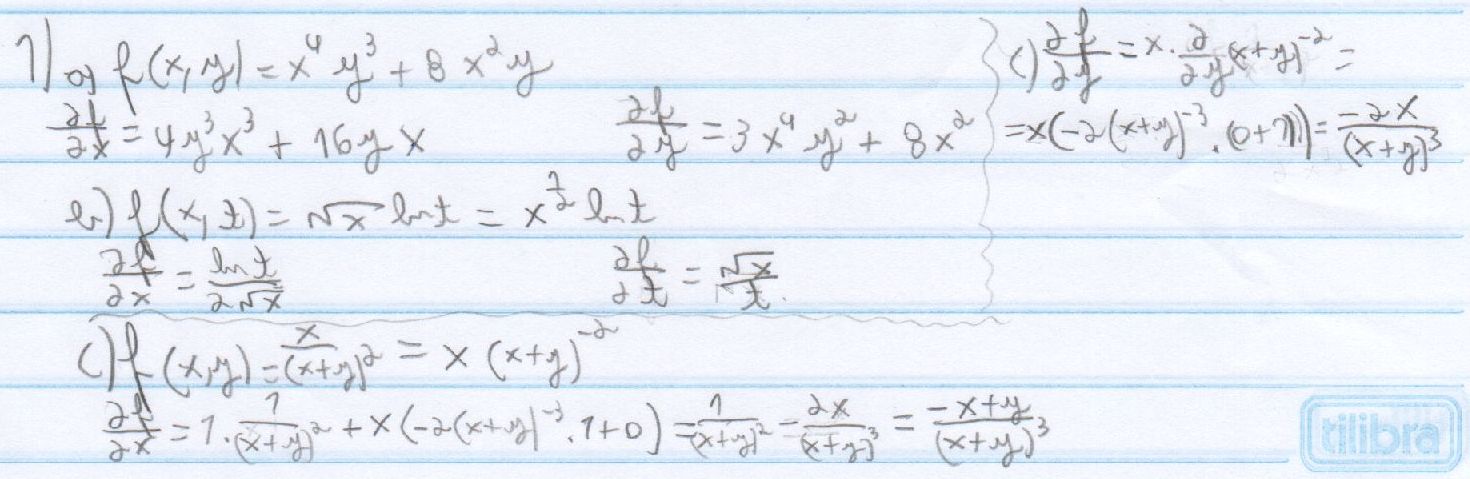 1) a) f(x,y) = x⁴y³ + 8x²y
∂f/∂x = 4y³x³ + 16yx    ∂f/∂y = 3x⁴y² + 8x²
b) f(x,t) = √x ln t = x^(1/2) ln t
∂f/∂x = ln t/(2√x)    ∂f/∂t = √x/t.
c) f(x,y) = x/(x+y)² = x(x+y)⁻²
∂f/∂x = 1·1/(x+y)² + x(-2(x+y)⁻³·1+0) = 1/(x+y)² - 2x/(x+y)³ = (-x+y)/(x+y)³
c) ∂f/∂y = x·∂/∂y(x+y)⁻² =
= x(-2(x+y)⁻³·(0+1)) = -2x/(x+y)³
tilibra